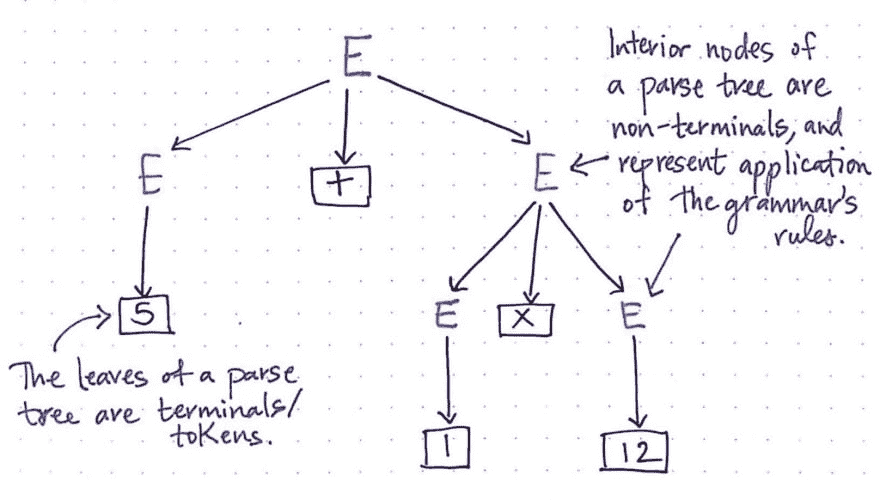 E
Interior nodes of
a parse tree are
non-terminals, and
represent application
of the grammar's
rules.
E + E
E x E
5
The leaves of a parse
tree are terminals/
tokens.
1 12